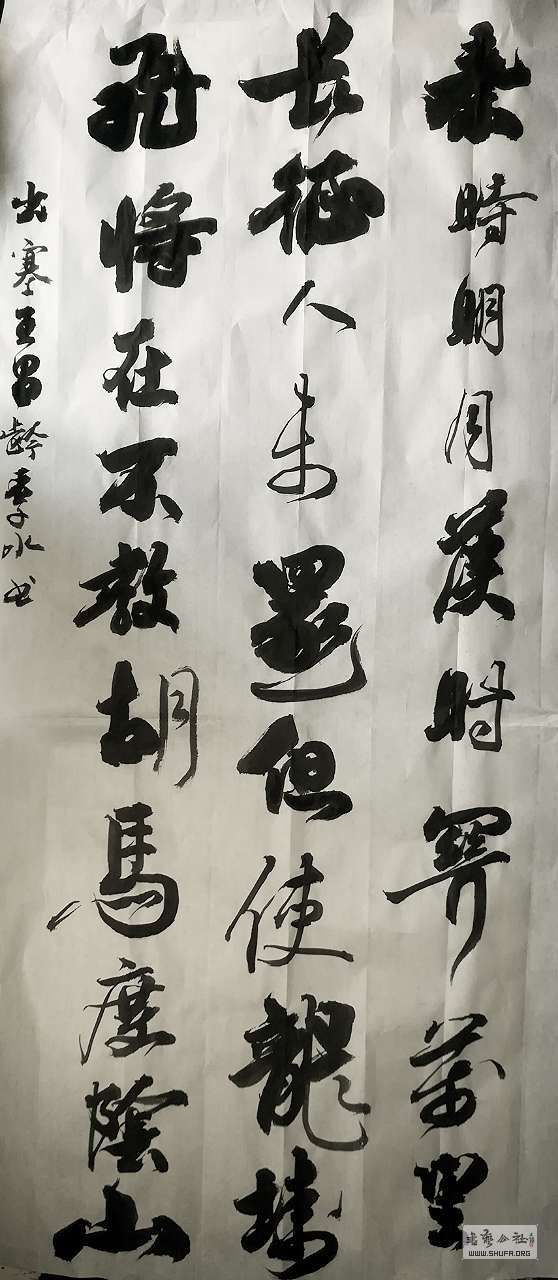 秦時明月漢時關萬里
長征人未還但使龍城
飛將在不教胡馬度陰山
出塞王昌齡李冰书
书艺公社
WWW.SHUFA.ORG